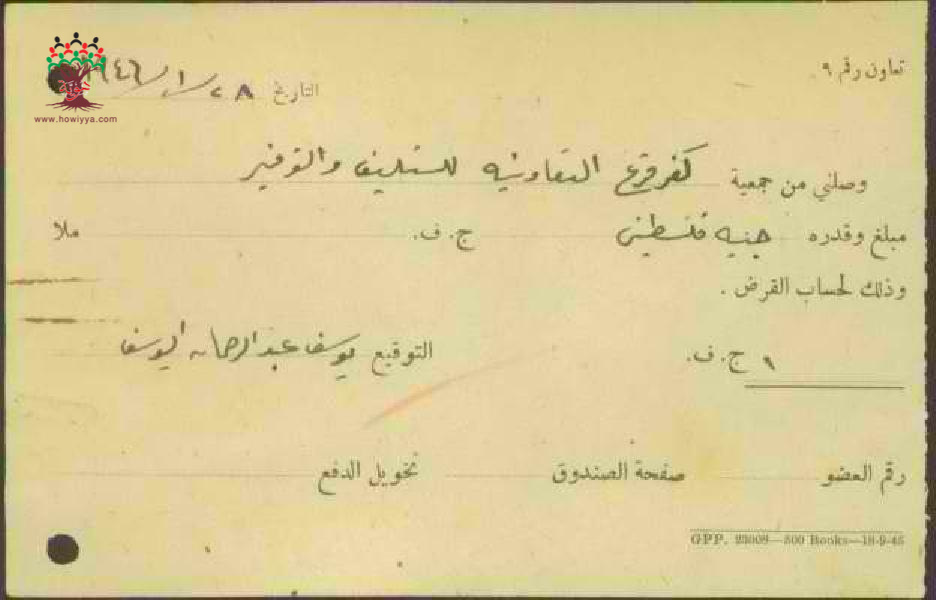 تعاون رقم ٩
التاريخ ٢٨/١/١٩٤٦
www.howiyya.com
وصلني من جمعية كفرقرع التعاونية للتسليف والتوفير
مبلغ وقدره جنيه فلسطيني ج. ف. ملا
وذلك لحساب القرض.
١ ج. ف. التوقيع يوسف عبد الرحمان اليوسف
رقم العضو صفحة الصندوق تخويل الدفع
G.P.P. 23008—500 Books—18-9-45